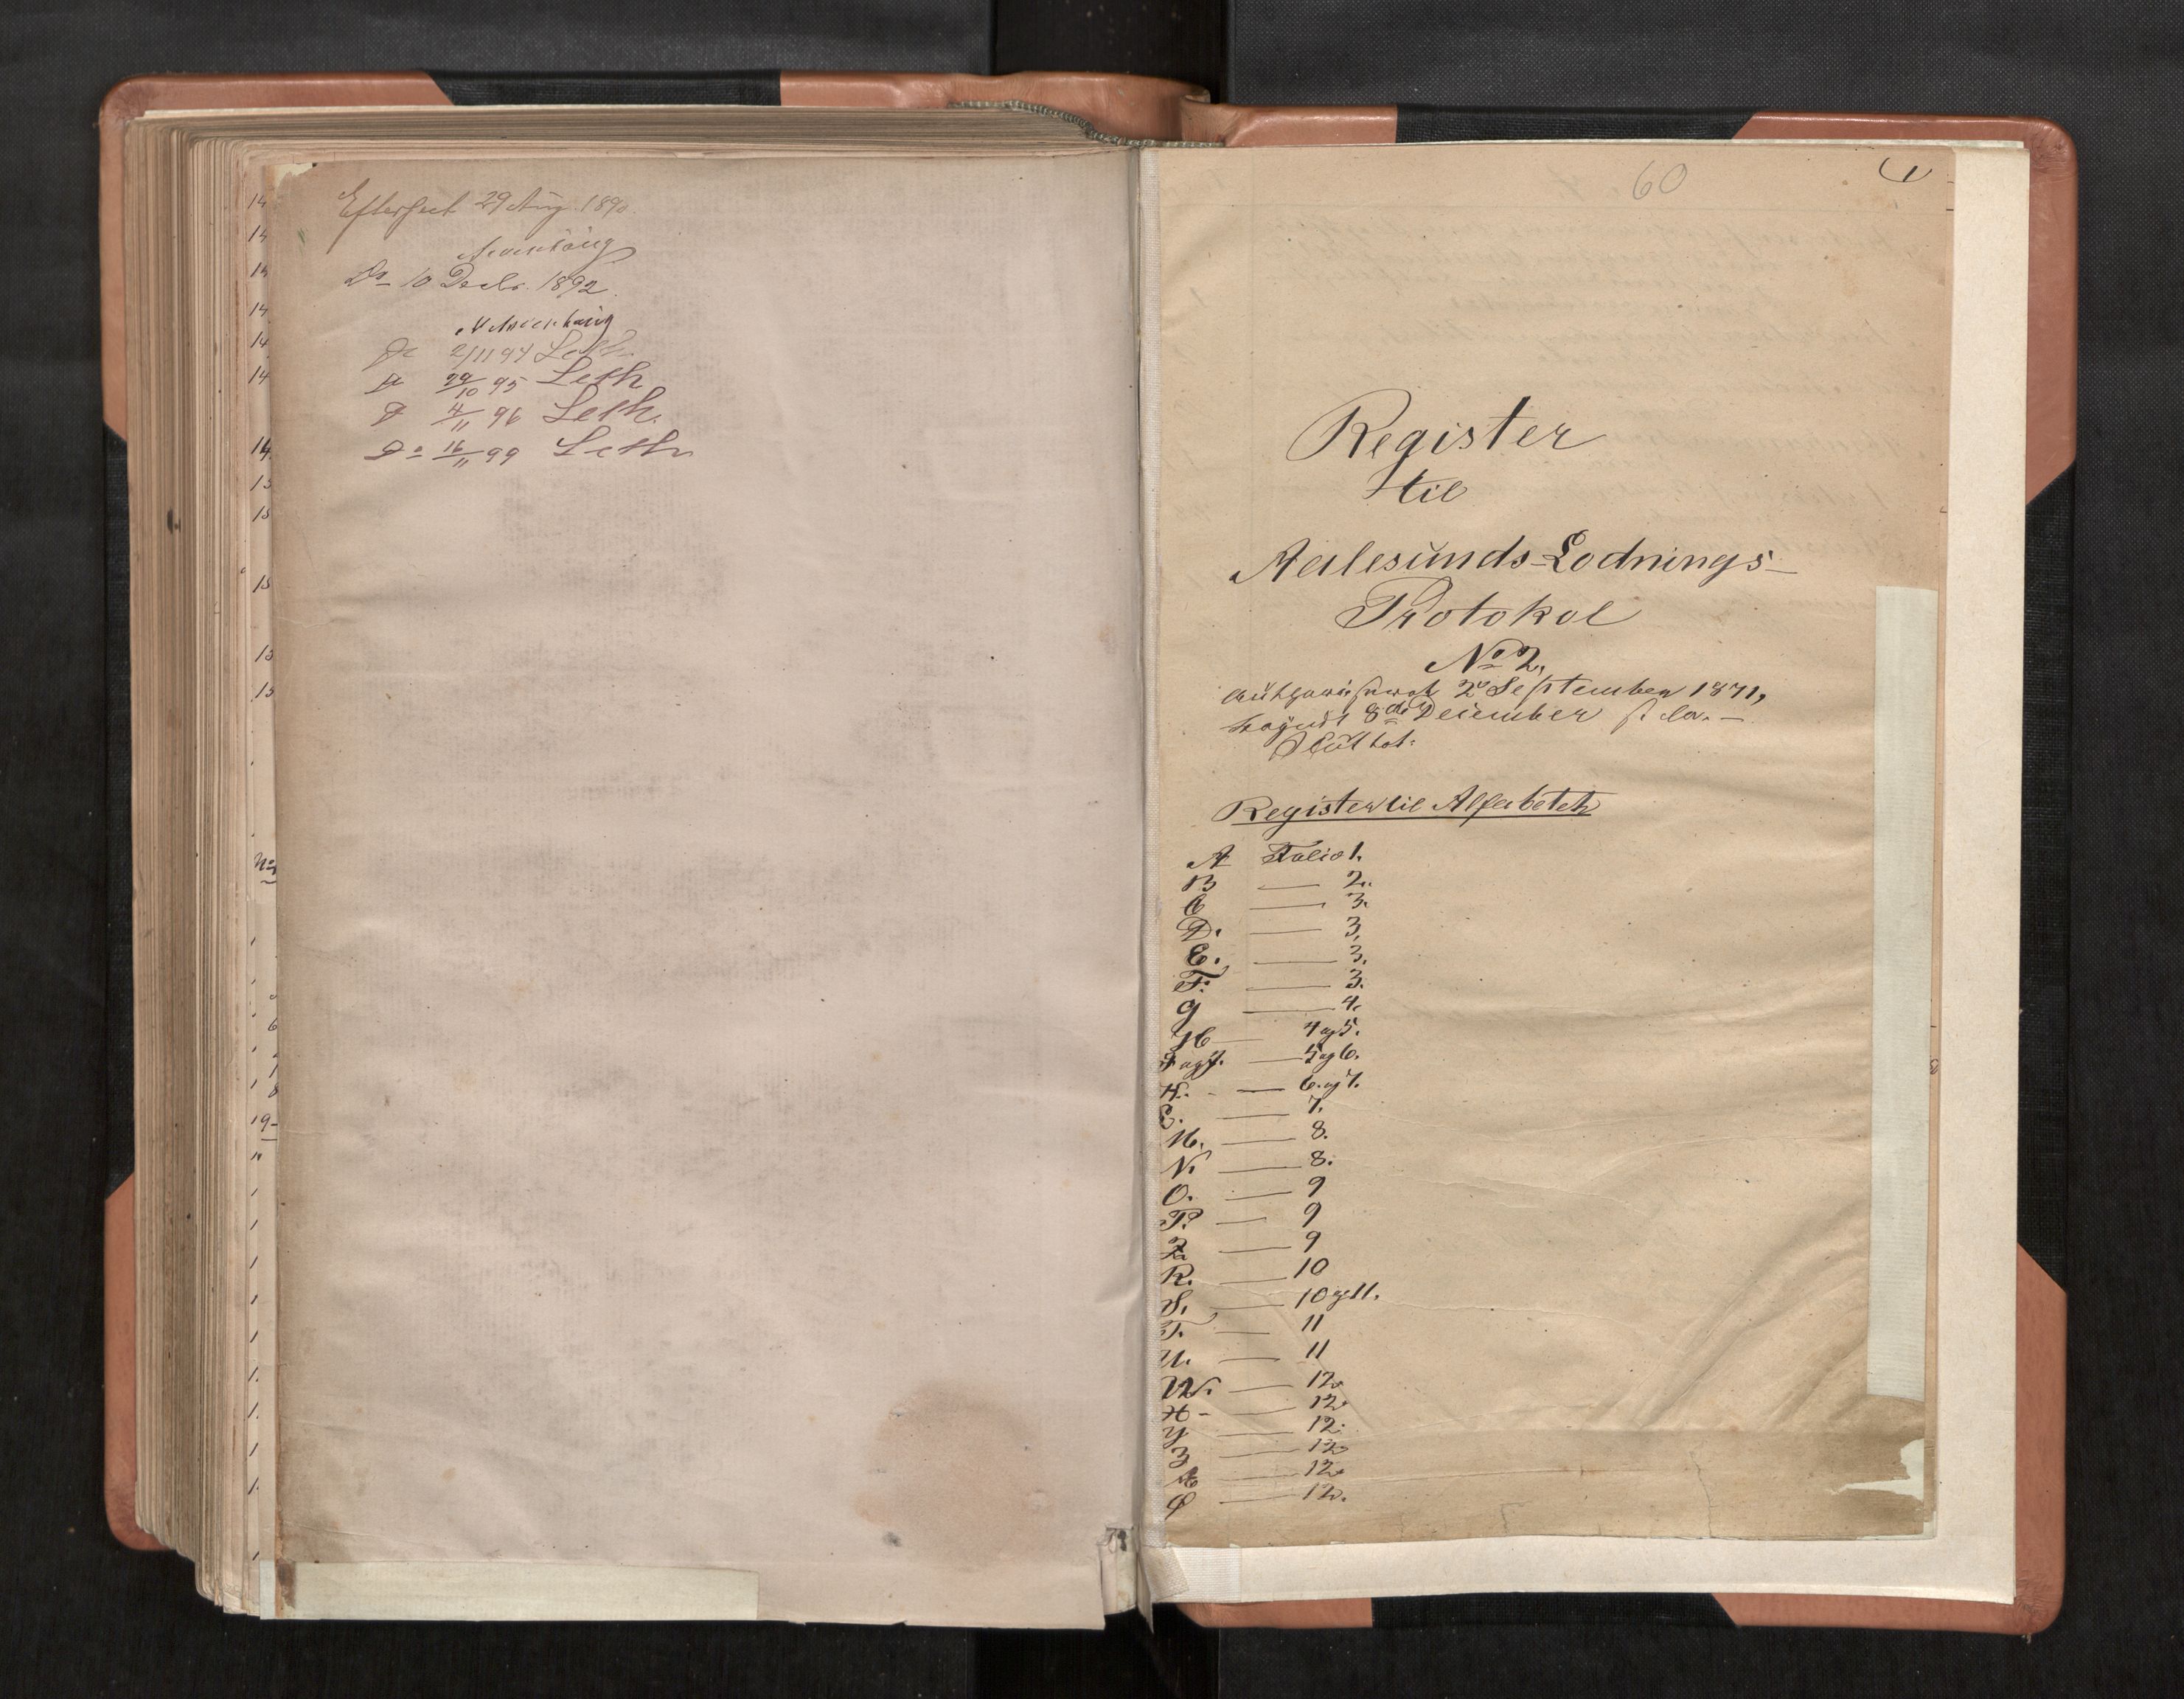 Efterseet 29 Aug. 1890.
Do 10 Decbr. 1892.
Do 2/11 94 Leth
Do 29/10 95 Leth
Do 4/11 96 Leth.
Do 16/11 99 Leth
60
1
Register
til
Aalesunds Lodnings-
Protokol
No 2,
authoriseret 2 September 1871,
8de December
Register til Alfabetet
A Folio 1.
B — 2.
C — 3.
D. — 3.
E. — 3.
F. — 3.
G — 4.
H — 4 og 5.
I og J. — 5 og 6.
K. — 6. og 7.
L. — 7.
M. — 8.
N. — 8.
O. — 9
P. — 9
Q. — 9
R. — 10
S. — 10 og 11.
T. — 11
U. — 11
W. — 12.
X — 12.
Y — 12.
Z — 12
Æ — 12.
Ø — 12.